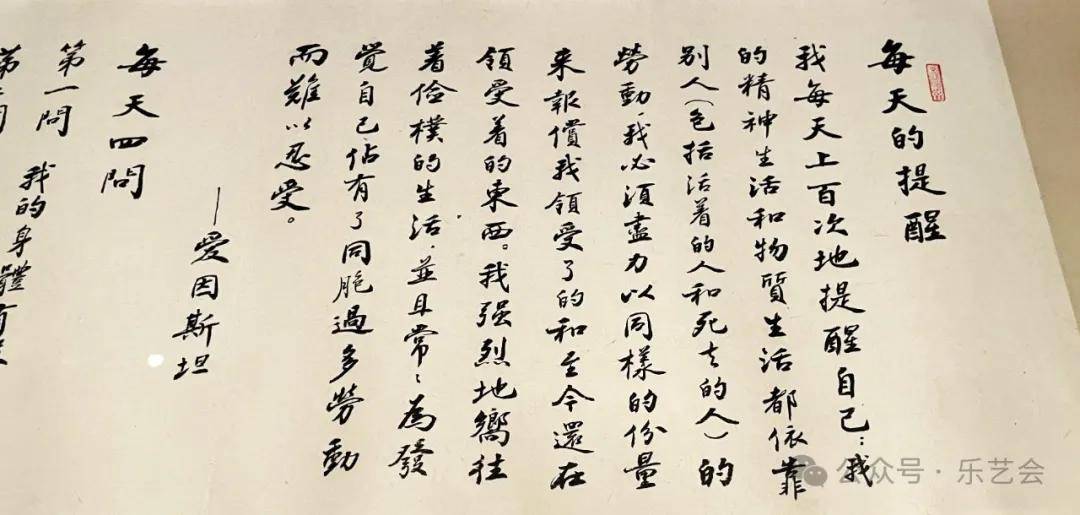 每天的提醒
我每天上百次地提醒自己:我
的精神生活和物質生活都依靠
別人(包括活着的人和死去的人)的
勞動,我必須盡力以同樣的份量
来報償我領受了的和至今還在
領受着的東西。我强烈地嚮往
着儉樸的生活,並且常〻為發
覺自己佔有了同胞過多勞動
而難以忍受。
——愛因斯坦
每天四問
第一問
我的身體有
公众号·乐艺会